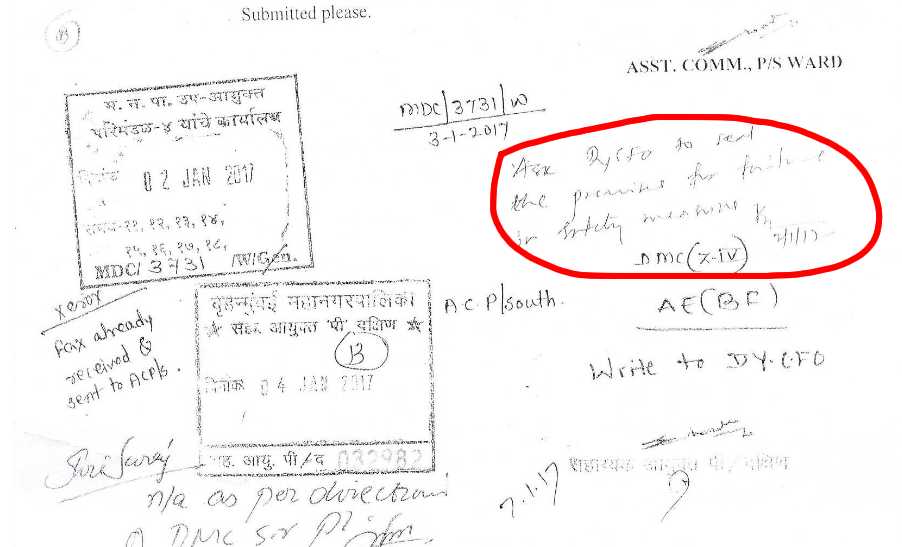 Submitted please.
ASST. COMM., P/S WARD
म. न. पा. उप-आयुक्त
परिमंडळ-४ यांचे कार्यालय
दिनांक 02 JAN 2017
११, १२, १३, १४,
१५, १६, १७, १८,
MDC/ 3731 /W/Gen.
MDC/3731/W
3-1-2017
Ask Dy CFO to seal
the premises for failure
in safety measure
DMC (Z-IV)
xerox
Fax already
received &
sent to ACP/s.
बृहन्मुंबई महानगरपालिका
सहा. आयुक्त पी दक्षिण
B
दिनांक 04 JAN 2017
सह. आयु. पी/द 032982
A.C.P/South.
AE(BF)
Write to DY.CFO
सहाय्यक आयुक्त पी/दक्षिण
7.1.17
Shri Suraj
n/a as per directions
DMC Sir Pl